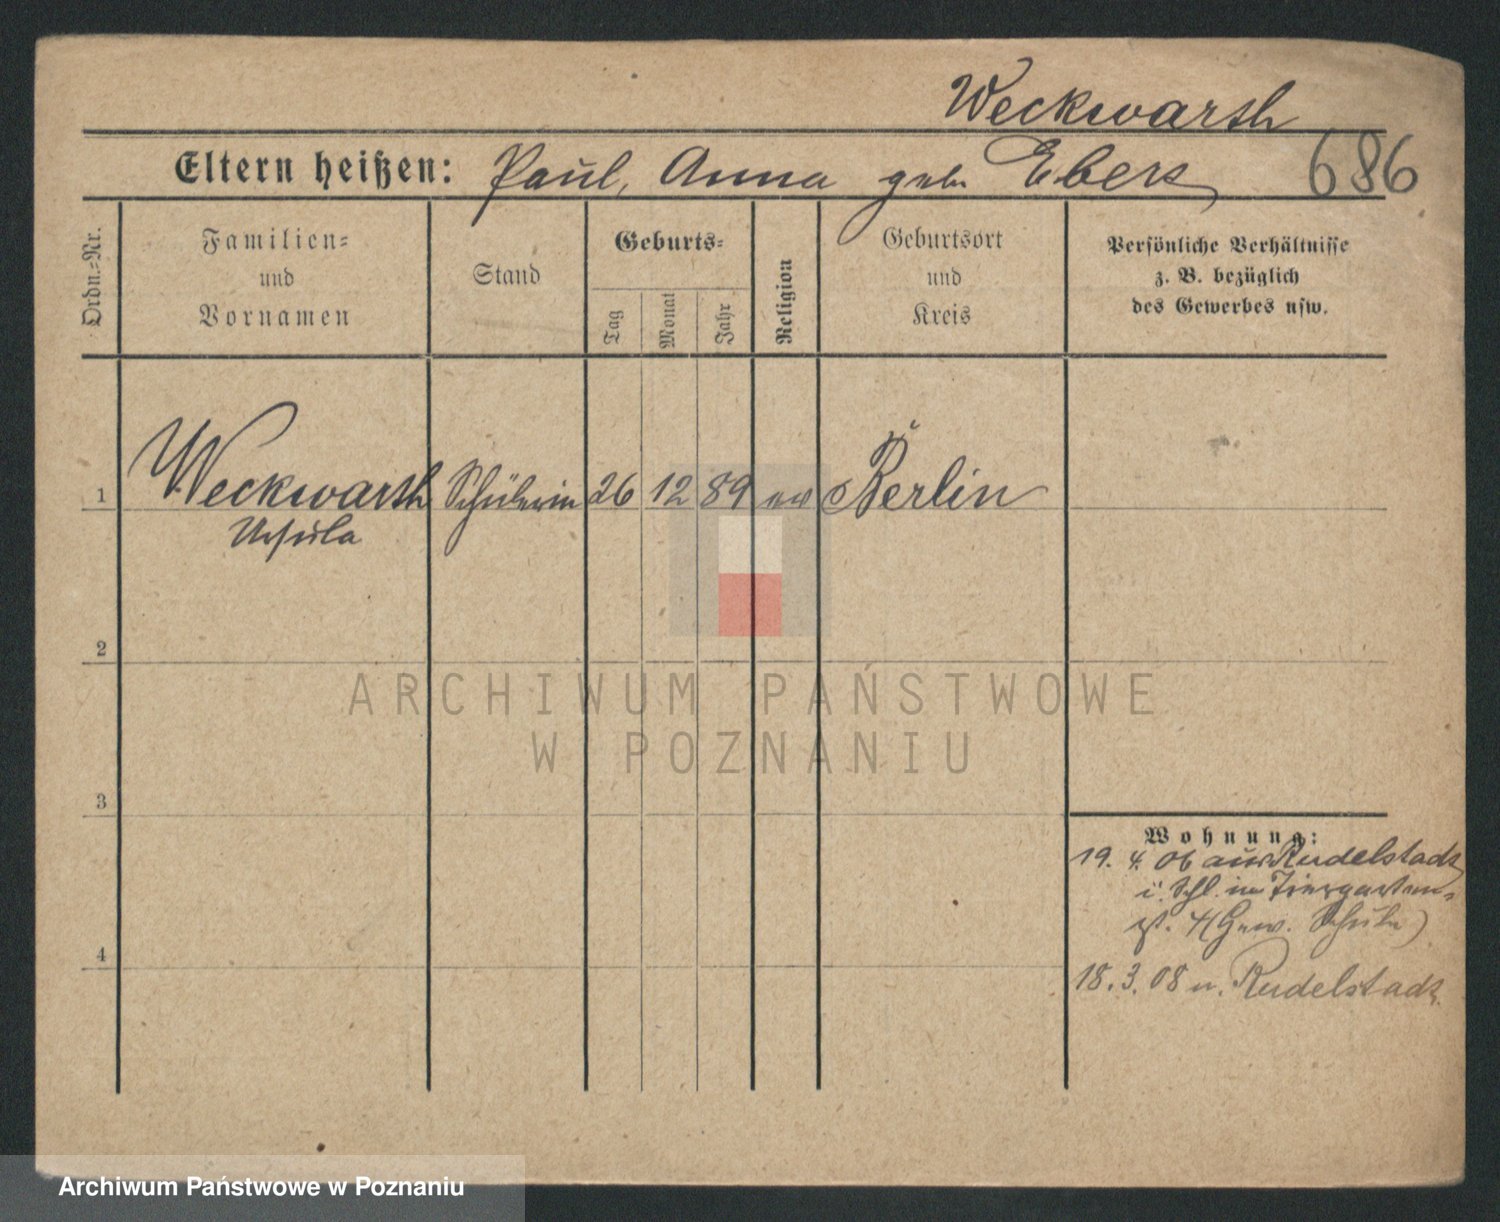 Weckwarth
Eltern heißen: Paul, Anna geb. Ebers 686
Ordn.-Nr.
Familien-
und
Vornamen
Stand
Geburts-
Tag
Monat
Jahr
Religion
Geburtsort
und
Kreis
Persönliche Verhältnisse
z. B. bezüglich
des Gewerbes usw.
1 Weckwarth Schülerin 26 12 89 ev Berlin
Ursula
2
ARCHIWUM PAŃSTWOWE
W POZNANIU
3
Wohnung:
19. 4. 06 aus Rudelstadt
i. Schl. in Tiergarten-
st. 4 (Gew. Schule)
4
18. 3. 08 n. Rudelstadt.
Archiwum Państwowe w Poznaniu